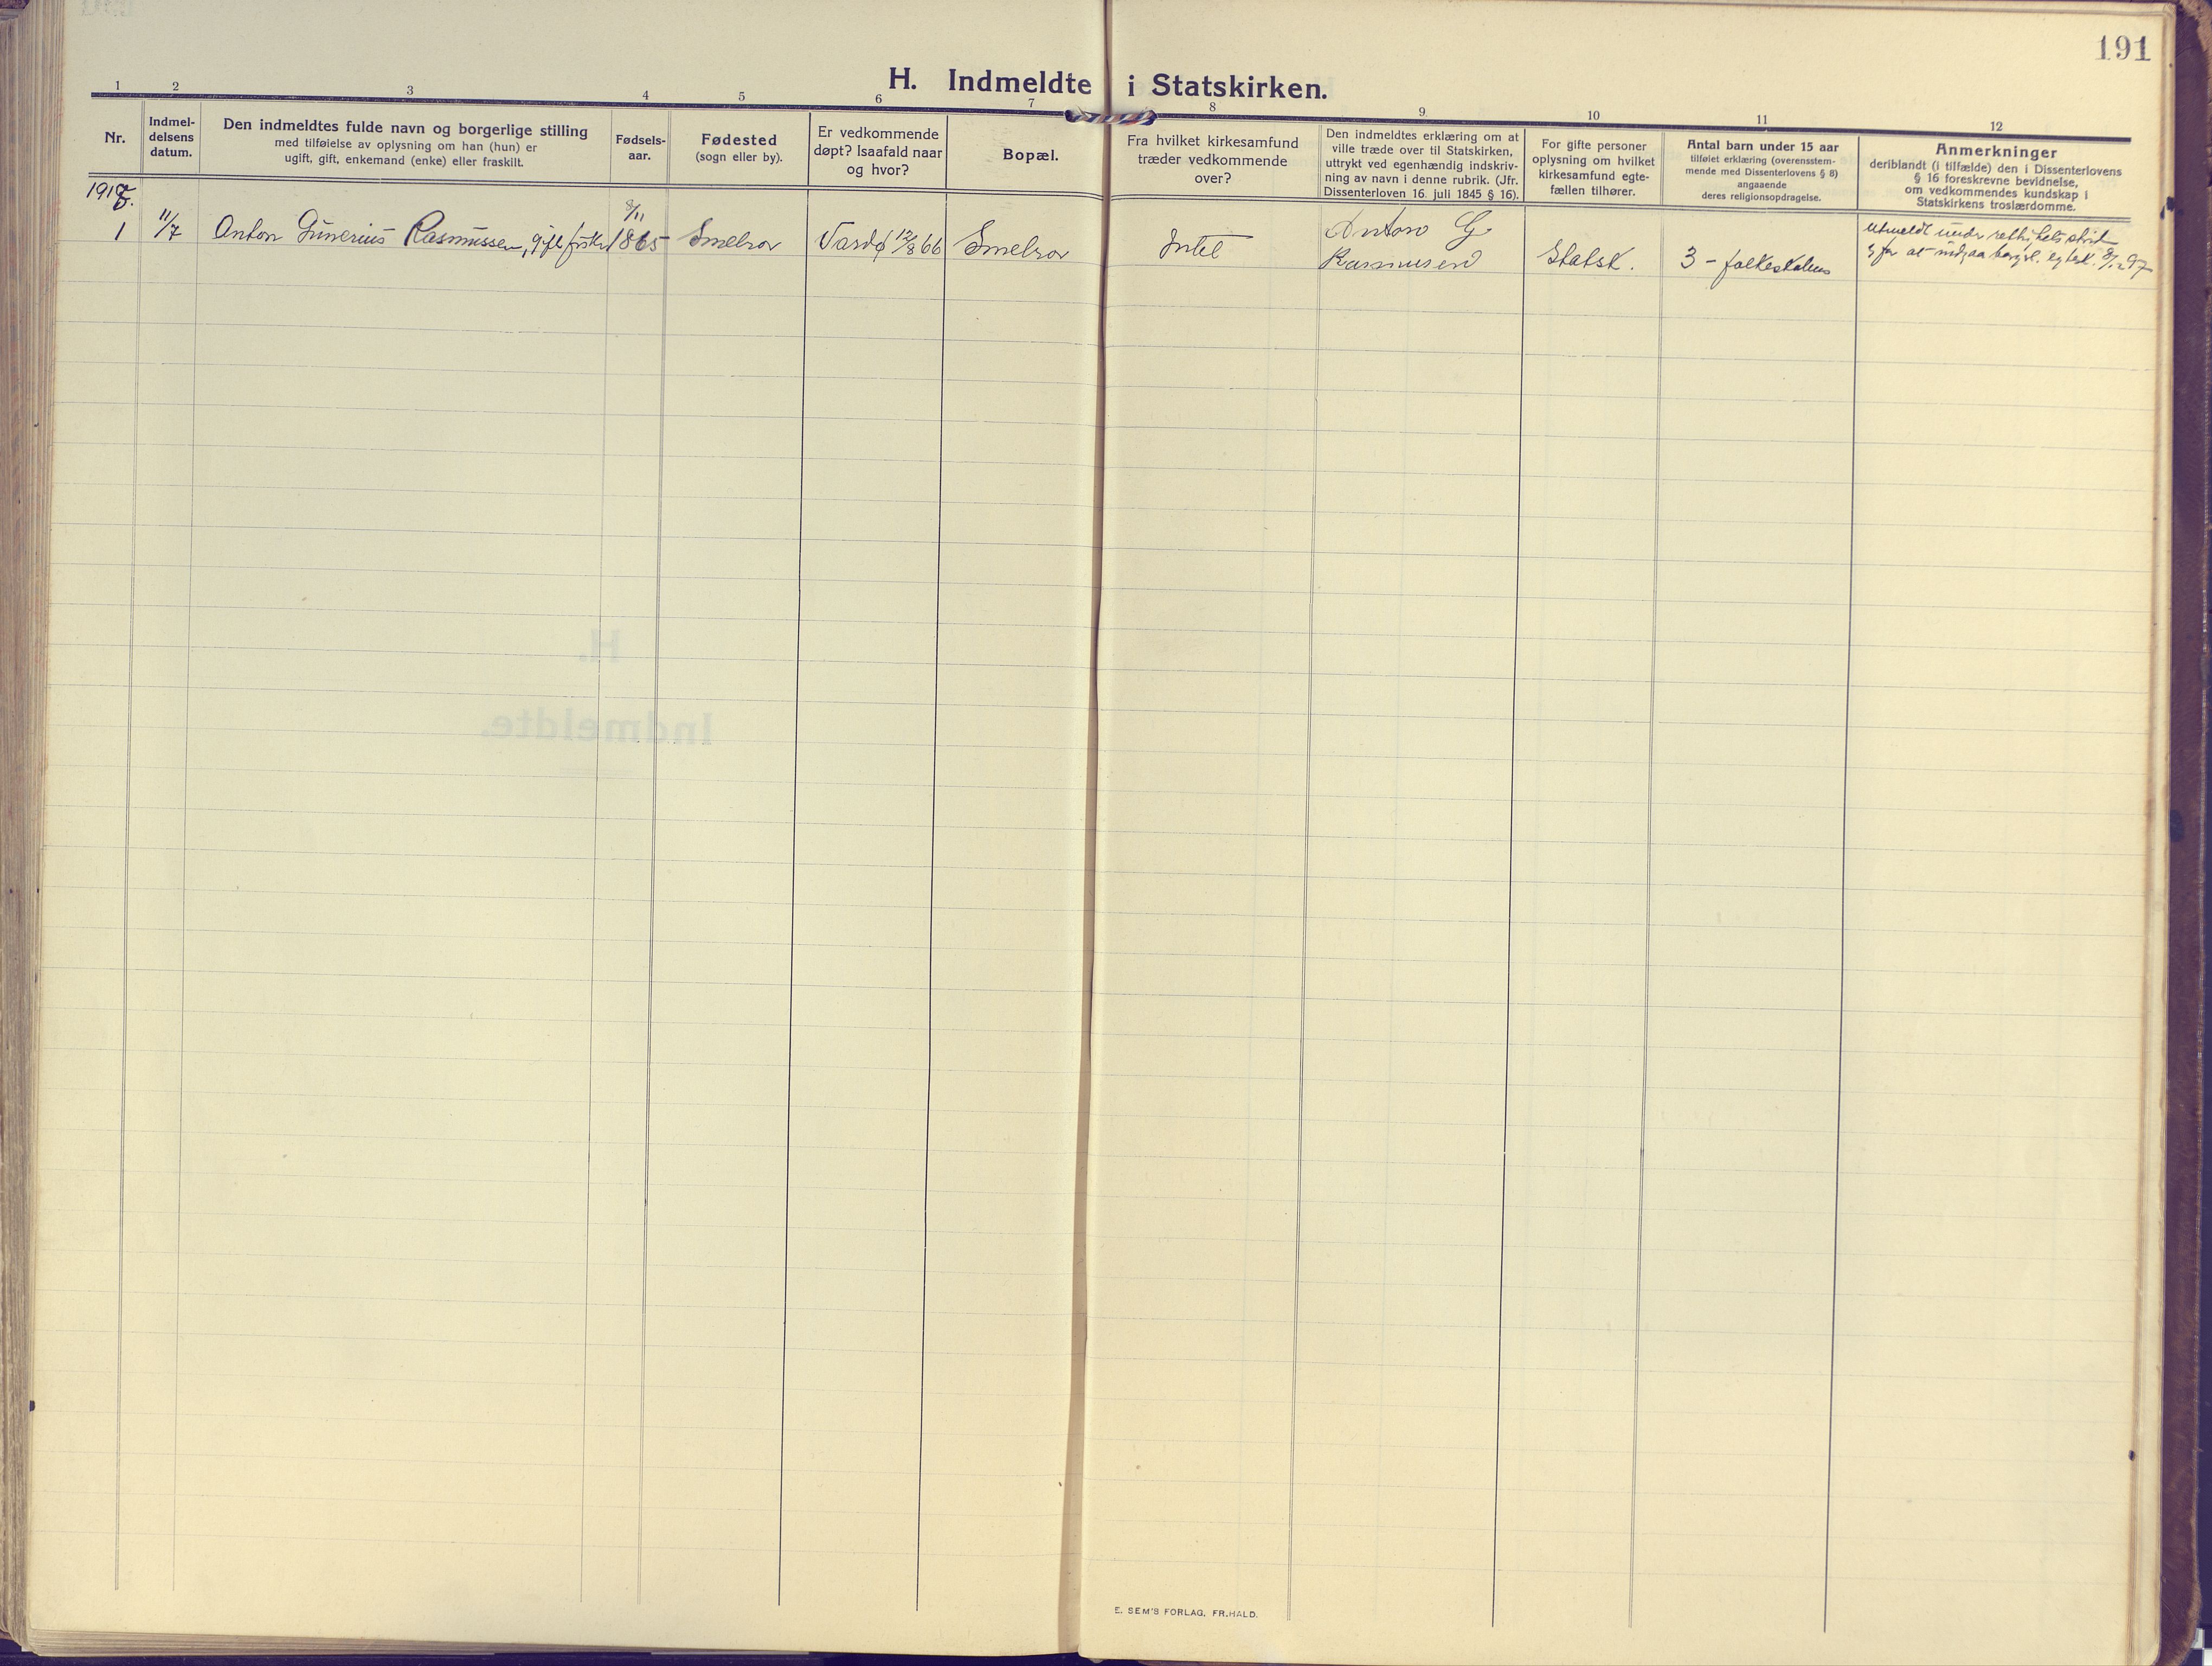 191
H. Indmeldte i Statskirken.
1 2 3 4 5 6 7 8 9 10 11 12
Nr.
Indmel-
delsens
datum.
Den indmeldtes fulde navn og borgerlige stilling
med tilføielse av oplysning om han (hun) er
ugift, gift, enkemand (enke) eller fraskilt.
Fødsels-
aar.
Fødested
(sogn eller by).
Er vedkommende
døpt? Isaafald naar
og hvor?
Bopæl.
Fra hvilket kirkesamfund
træder vedkommende
over?
Den indmeldtes erklæring om at
ville træde over til Statskirken,
uttrykt ved egenhændig indskriv-
ning av navn i denne rubrik. (Jfr.
Dissenterloven 16. juli 1845 § 16).
For gifte personer
oplysning om hvilket
kirkesamfund egte-
fællen tilhører.
Antal barn under 15 aar
tilføiet erklæring (overensstem-
mende med Dissenterlovens § 8)
angaaende
deres religionsopdragelse.
Anmerkninger
deriblandt (i tilfælde) den i Dissenterlovens
§ 16 foreskrevne bevidnelse,
om vedkommendes kundskap i
Statskirkens troslærdomme.
1
11/7
Anton Gunerius Rasmussen, gift fisker
8/11
1865
Smelror
Vardø 12/8 66
Smelror
Intet
Anton G
Rasmusen
Statsk.
3 - folkeskolens
utmeldt under
for at indgaa borgerl. egtesk. 97
H.
Indmeldte.
E. SEM'S FORLAG, FR.HALD.